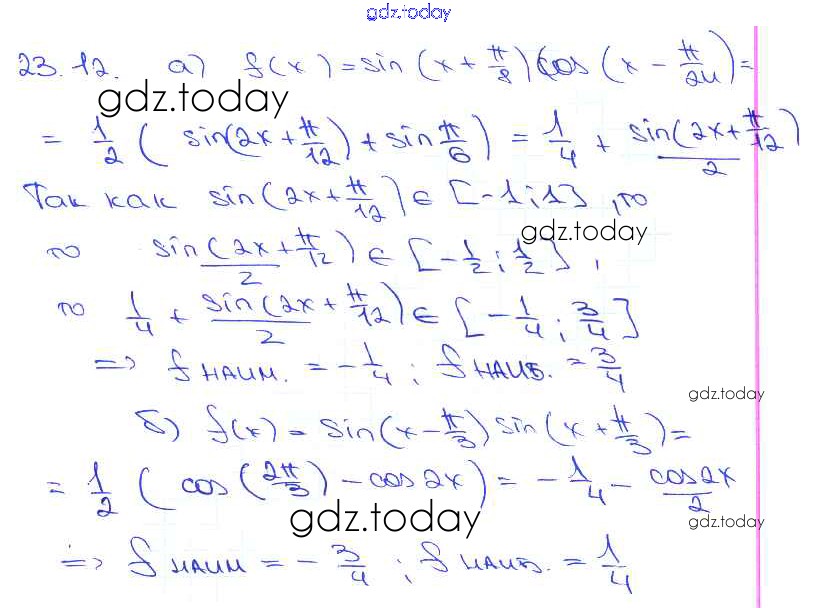 gdz.today
23.12. а) f(x) = sin(x + π/8) cos(x - π/24) =
gdz.today
= 1/2 (sin(2x + π/12) + sin π/6) = 1/4 + sin(2x + π/12)/2
Так как sin(2x + π/12) ∈ [-1; 1], то
gdz.today
то sin(2x + π/12)/2 ∈ [-1/2; 1/2],
то 1/4 + sin(2x + π/12)/2 ∈ [-1/4; 3/4]
=> f наим. = -1/4; f наиб. = 3/4
gdz.today
б) f(x) = sin(x - π/3) sin(x + π/3) =
= 1/2 (cos(2π/3) - cos2x) = -1/4 - cos2x/2
gdz.today
gdz.today
=> f наим = -3/4; f наиб. = 1/4